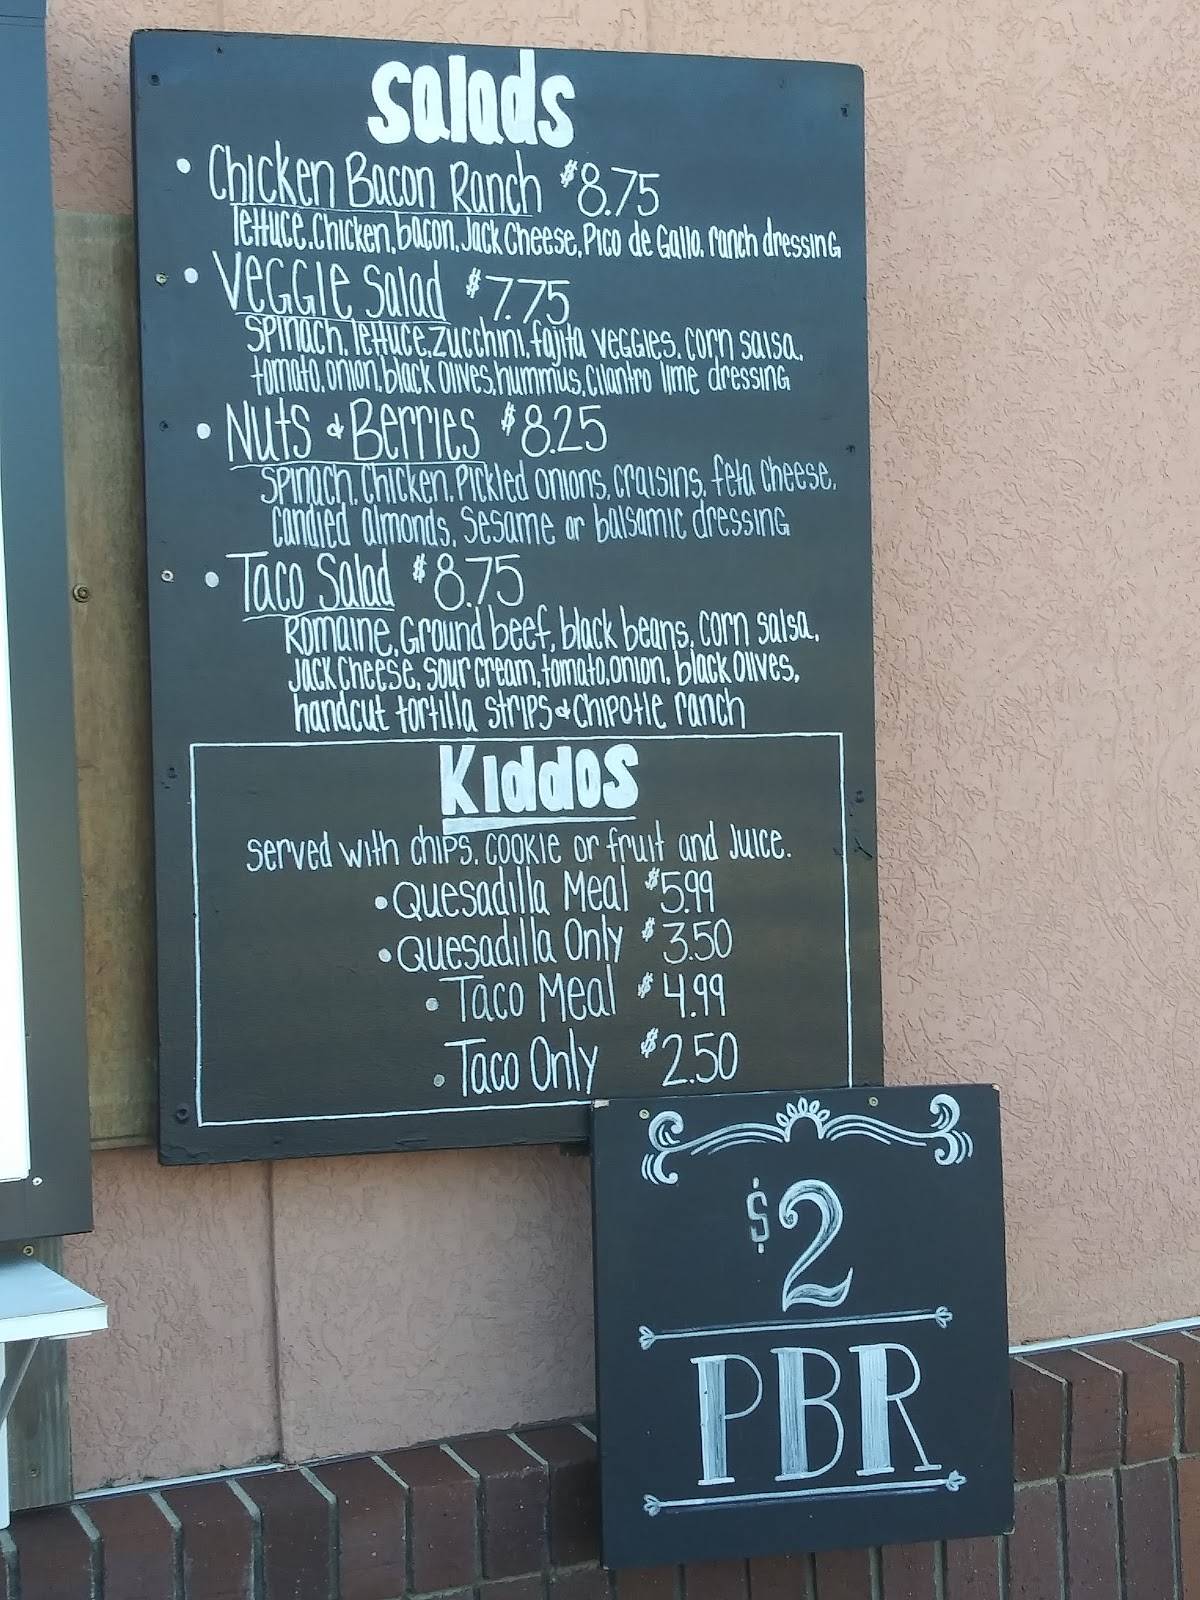 Salads
• Chicken Bacon Ranch $8.75
lettuce, Chicken, bacon, Jack Cheese, Pico de Gallo, ranch dressing
• Veggie Salad $7.75
Spinach, lettuce, zucchini, fajita veggies, corn salsa,
tomato, onion, black olives, hummus, Cilantro lime dressing
• Nuts & Berries $8.25
Spinach, Chicken, Pickled onions, craisins, feta cheese,
candied almonds, Sesame or balsamic dressing
• Taco Salad $8.75
Romaine, Ground beef, black beans, corn salsa,
Jack Cheese, sour cream, tomato, onion, black olives,
handcut tortilla strips & Chipotle ranch
Kiddos
served with chips, cookie or fruit and juice.
• Quesadilla Meal $5.99
• Quesadilla Only $3.50
• Taco Meal $4.99
• Taco Only $2.50
$2
PBR